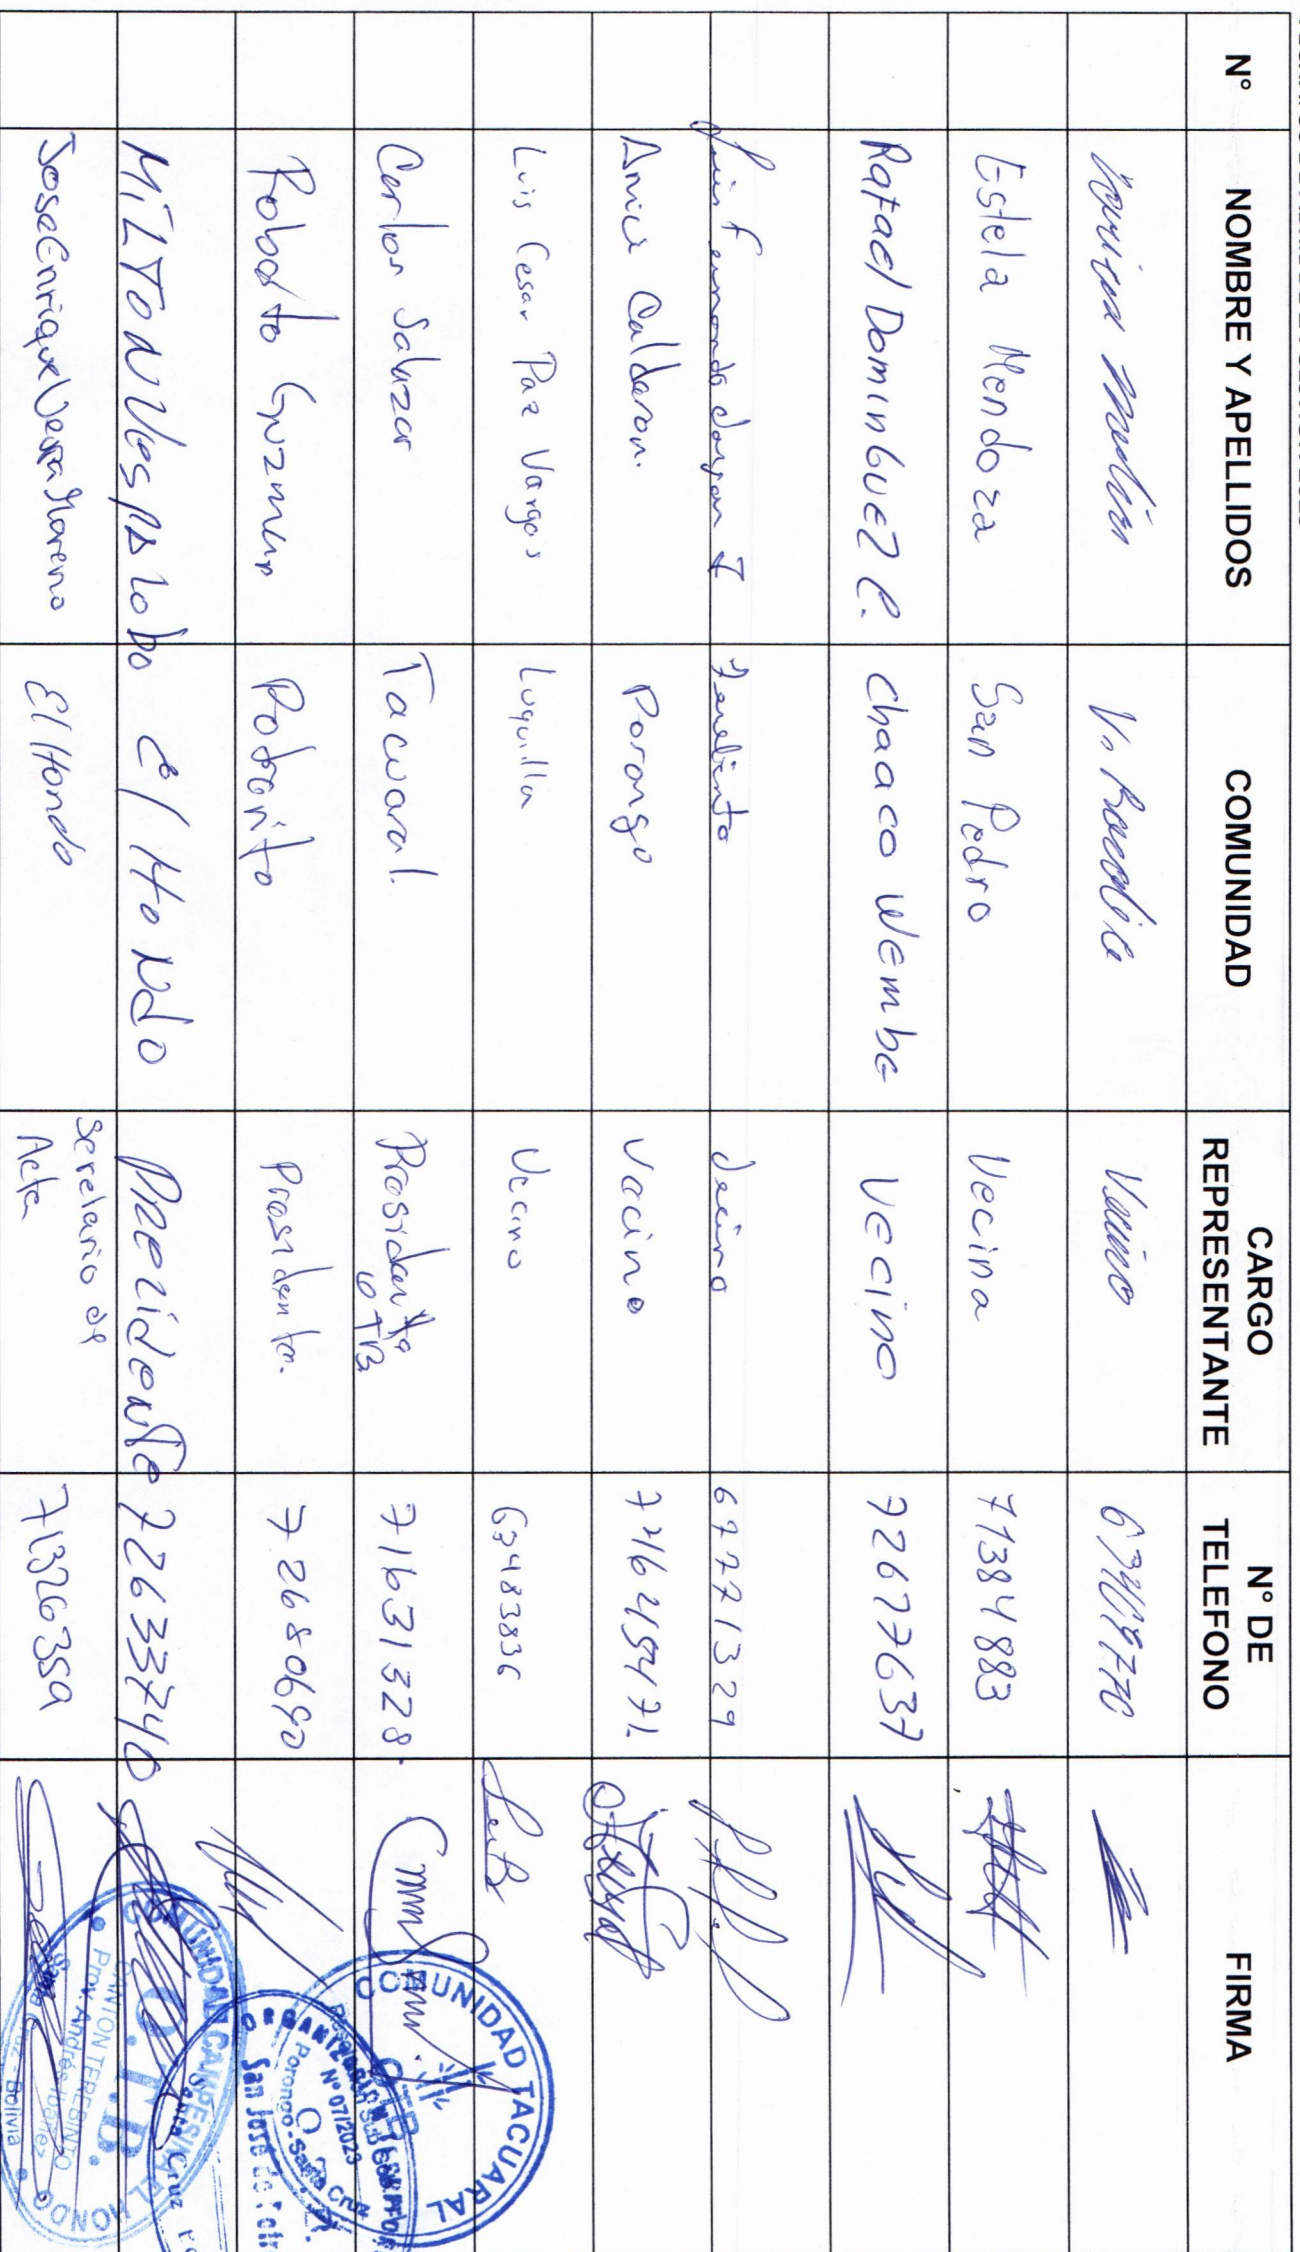 N° NOMBRE Y APELLIDOS COMUNIDAD CARGO REPRESENTANTE N° DE TELEFONO FIRMA
Vecino
Estela Mendoza San Pedro Vecina 71384883
Rafael Dominguez C. Chaaco Wembe Vecino 72677637
Luis Fernando Terebinto Vecino 67771329
Calderon. Porongo Vacino
Luis Cesar Paz Vargas Luquilla Vecino 63483836
Carlos Salazar Tacuaral. Prasidante OTB 71631328.
Roberto Guzman Potrerito Prasidente. 72680690
MiLToN Vespa lobo El HoNdo Precidente 72633740
Jose Enrique Vessa Moreno El Hondo Serelario de Acta 71326359
COMUNIDAD TACUARAL
OTB
N° 07/2023
Porongo - Santa Cruz
San José de
COMUNIDAD CAMPESINA EL HONDO
O.T.B.
CANTON TEREBINTO
Prov. Andrés Ibáñez
Santa Cruz - Bolivia